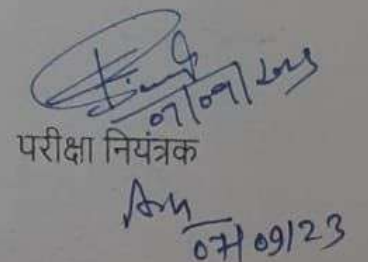 07/09/2023
परीक्षा नियंत्रक
07/09/23